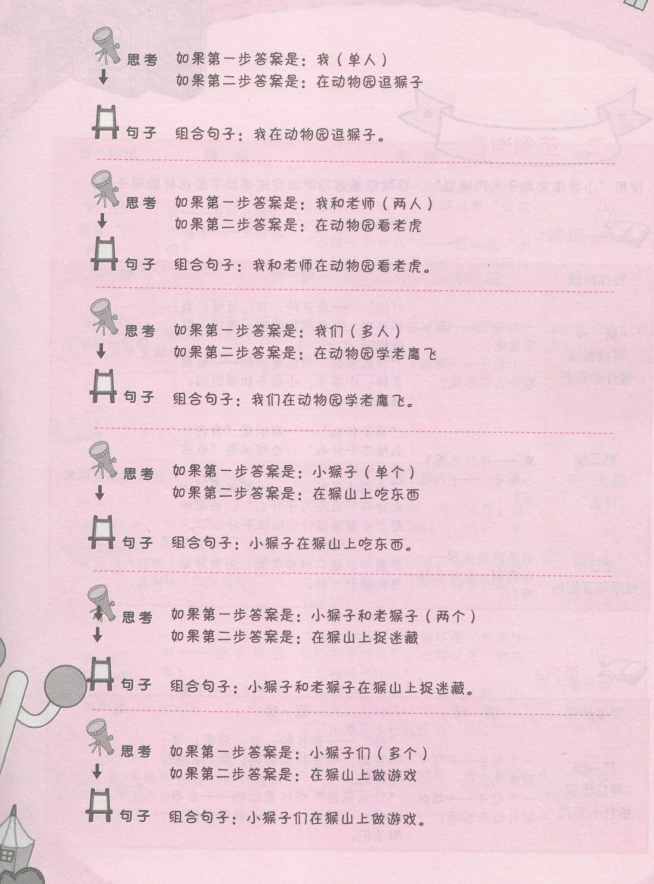 思考 如果第一步答案是：我（单人）
如果第二步答案是：在动物园逗猴子
句子 组合句子：我在动物园逗猴子。
思考 如果第一步答案是：我和老师（两人）
如果第二步答案是：在动物园看老虎
句子 组合句子：我和老师在动物园看老虎。
思考 如果第一步答案是：我们（多人）
如果第二步答案是：在动物园学老鹰飞
句子 组合句子：我们在动物园学老鹰飞。
思考 如果第一步答案是：小猴子（单个）
如果第二步答案是：在猴山上吃东西
句子 组合句子：小猴子在猴山上吃东西。
思考 如果第一步答案是：小猴子和老猴子（两个）
如果第二步答案是：在猴山上捉迷藏
句子 组合句子：小猴子和老猴子在猴山上捉迷藏。
思考 如果第一步答案是：小猴子们（多个）
如果第二步答案是：在猴山上做游戏
句子 组合句子：小猴子们在猴山上做游戏。